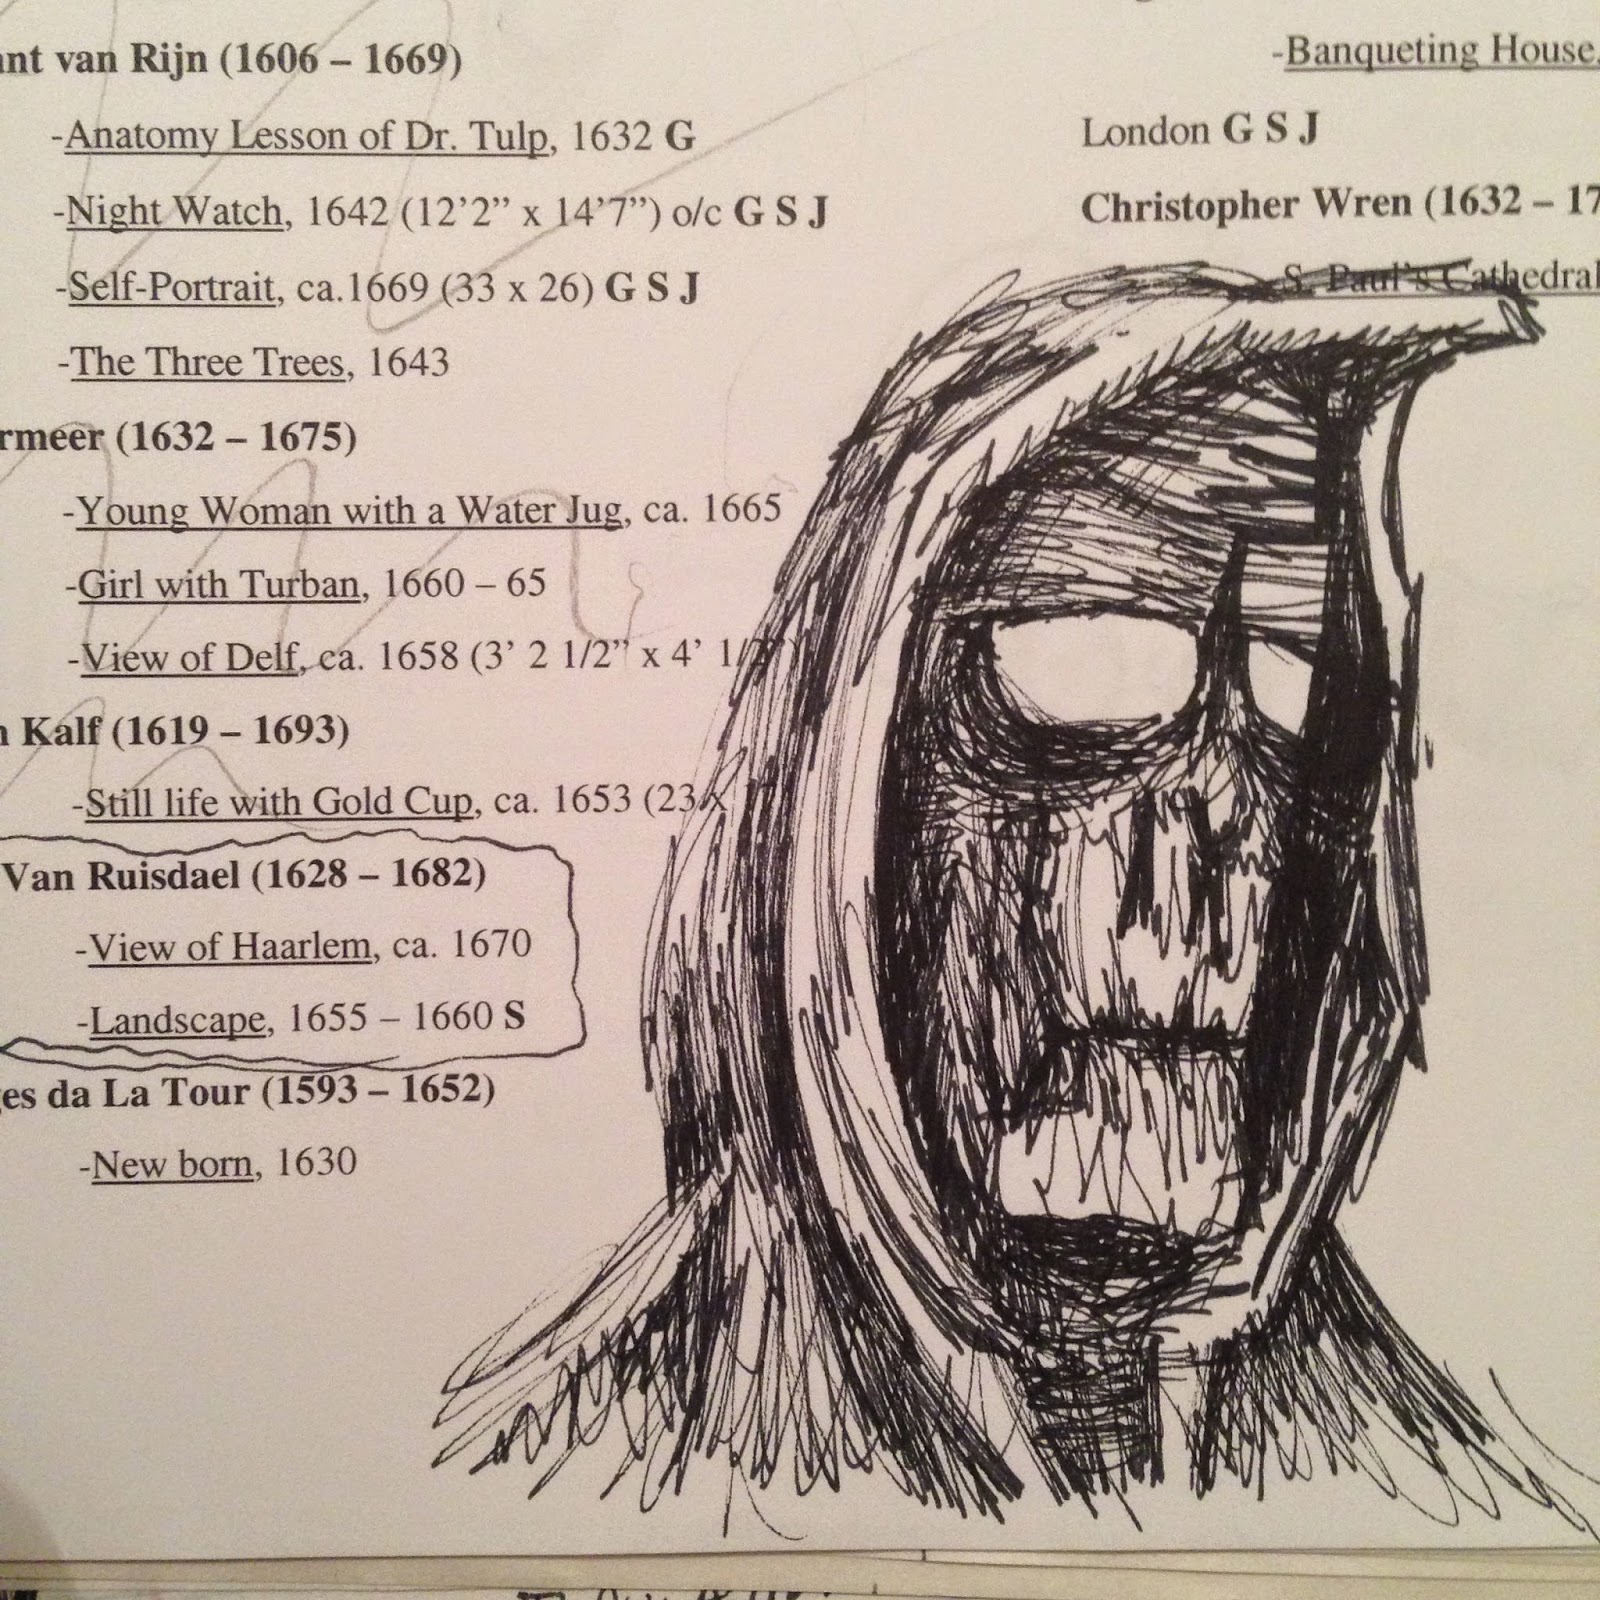 ant van Rijn (1606 – 1669)
-Anatomy Lesson of Dr. Tulp, 1632 G
-Night Watch, 1642 (12’2” x 14’7”) o/c G S J
-Self-Portrait, ca.1669 (33 x 26) G S J
-The Three Trees, 1643
rmeer (1632 – 1675)
-Young Woman with a Water Jug, ca. 1665
-Girl with Turban, 1660 – 65
-View of Delf, ca. 1658 (3’ 2 1/2” x 4’ 1/2”)
Kalf (1619 – 1693)
-Still life with Gold Cup, ca. 1653 (23 x
Van Ruisdael (1628 – 1682)
-View of Haarlem, ca. 1670
-Landscape, 1655 – 1660 S
ges da La Tour (1593 – 1652)
-New born, 1630
-Banqueting House,
London G S J
Christopher Wren (1632 – 17
S. Paul’s Cathedral